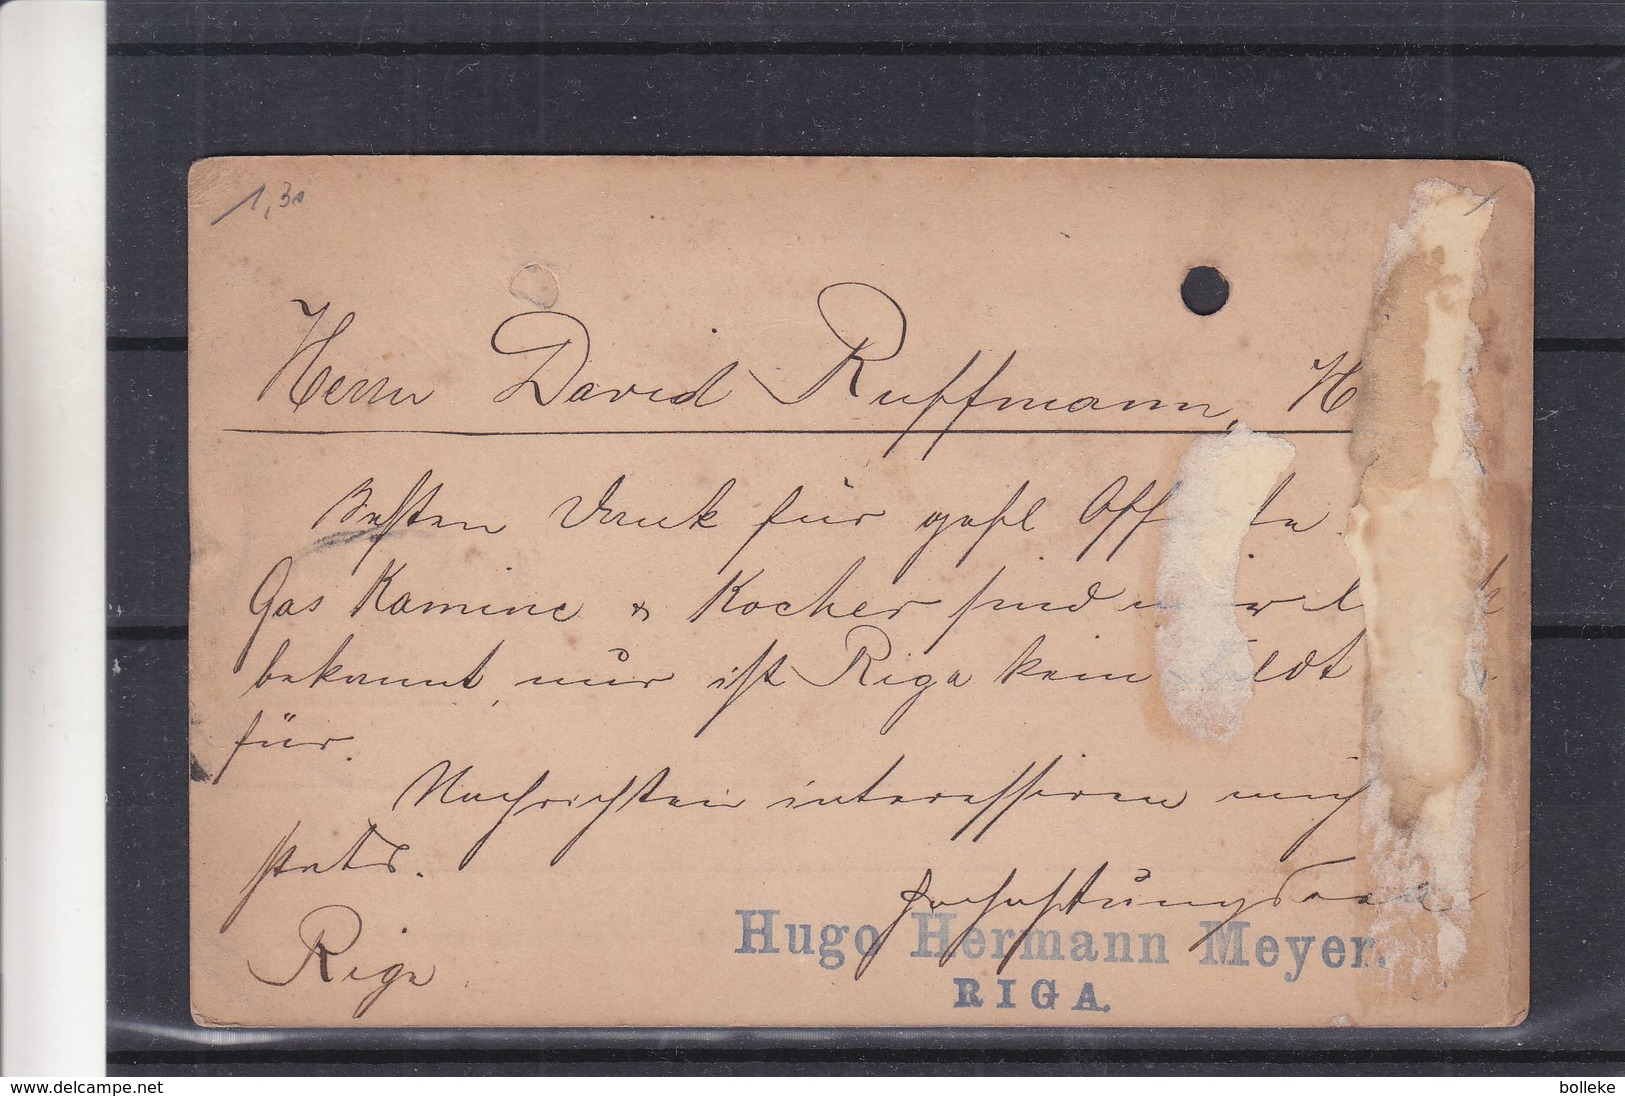 1,30
Herrn David Ruffmann, H
Besten Dank für gefl Off
Gas Kamine & Kocher sind
bekannt, nur ist Riga kein
für.
Nachrichten interessiren mich
stets.
Hochachtungsvoll
Hugo Hermann Meyer.
Riga
RIGA.
www.delcampe.net
bolleke